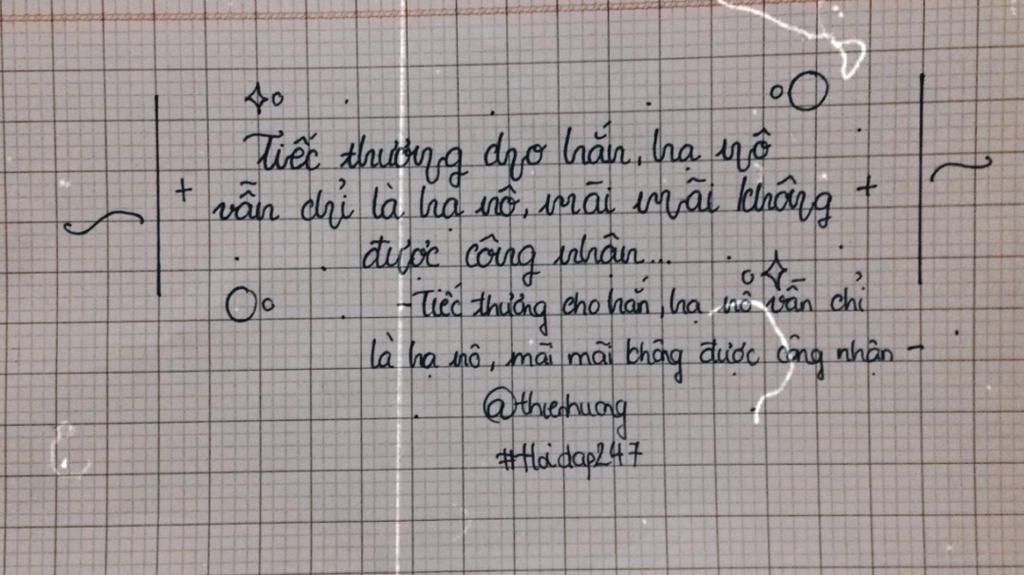 Tiếc thương cho hắn, hạ nô
vẫn chỉ là hạ nô, mãi mãi không
được công nhận...
- Tiếc thương cho hắn, hạ nô vẫn chỉ
là hạ nô, mãi mãi không được công nhận -
@thuehuong
#Hoidap247